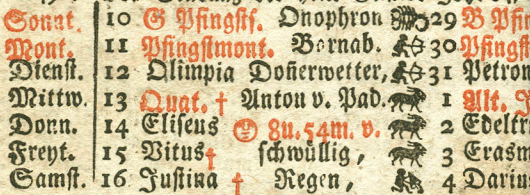 Sonnt. 10 G Pfingstf. Onophron 29 B Pfi
Mont. 11 Pfingstmont. Barnab. 30 Pfingst
Dienst. 12 Olimpia Doñerwetter, 31 Petron
Mittw. 13 Quat. † Anton v. Pad. 1 Alt. J
Donn. 14 Eliseus 8u. 54m. v. 2 Edeltr
Freyt. 15 Vitus † schwüllig, 3 Erasm
Samst. 16 Justina † Regen, 4 Darius